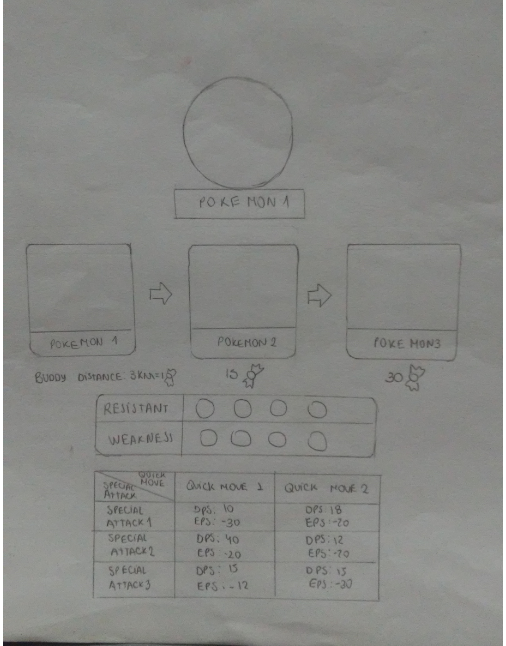 POKEMON 1
POKEMON 1
POKEMON 2
POKEMON3
BUDDY DISTANCE 3KM=1
15
30
RESISTANT
WEAKNESS
QUICK MOVE
SPECIAL ATTACK
QUICK MOVE 1
QUICK MOVE 2
SPECIAL ATTACK 1
DPS: 10
EPS: -30
DPS: 18
EPS: -20
SPECIAL ATTACK 2
DPS: 40
EPS -20
DPS: 12
EPS: -70
SPECIAL ATTACK 3
DPS: 15
EPS: -12
DPS: 15
EPS: -30